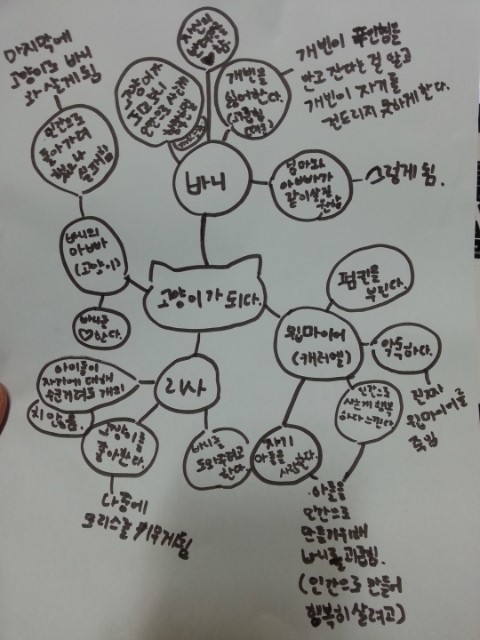 마지막에
고양이도 바니
와 살게 됨
인간으로
돌아가려
했으나
실패함
바니의
아빠
(고양이)
바니를
♡한다.
자신의
아빠를
♡함
고양이가
되고 나
인간으로
개빈을
싫어한다.
(괴롭힘
때문)
개빈이 #인형을
안고 잔다는 걸 알고
개빈이 자기를
건드리지 못하게 한다.
바니
엄마와
아빠가
같이 살길
원함
그렇게 됨.
고양이가 되다.
펌킨을
부린다.
윕마이어
(캐러멜)
악독하다.
진짜
윕마이어를
죽임
인간으로
사는게 행복
하다 느낀다
자기
아들을
사랑한다.
아들을
인간으로
만들기위해
바니를 괴롭힘.
(인간으로 만들어
행복히 살려고)
리사
아이들이
자기에 대해
수군거려도 개의
치 않음.
고양이를
좋아한다.
나중에
모리스를 키우게 됨
바니를
도와주려고
한다.